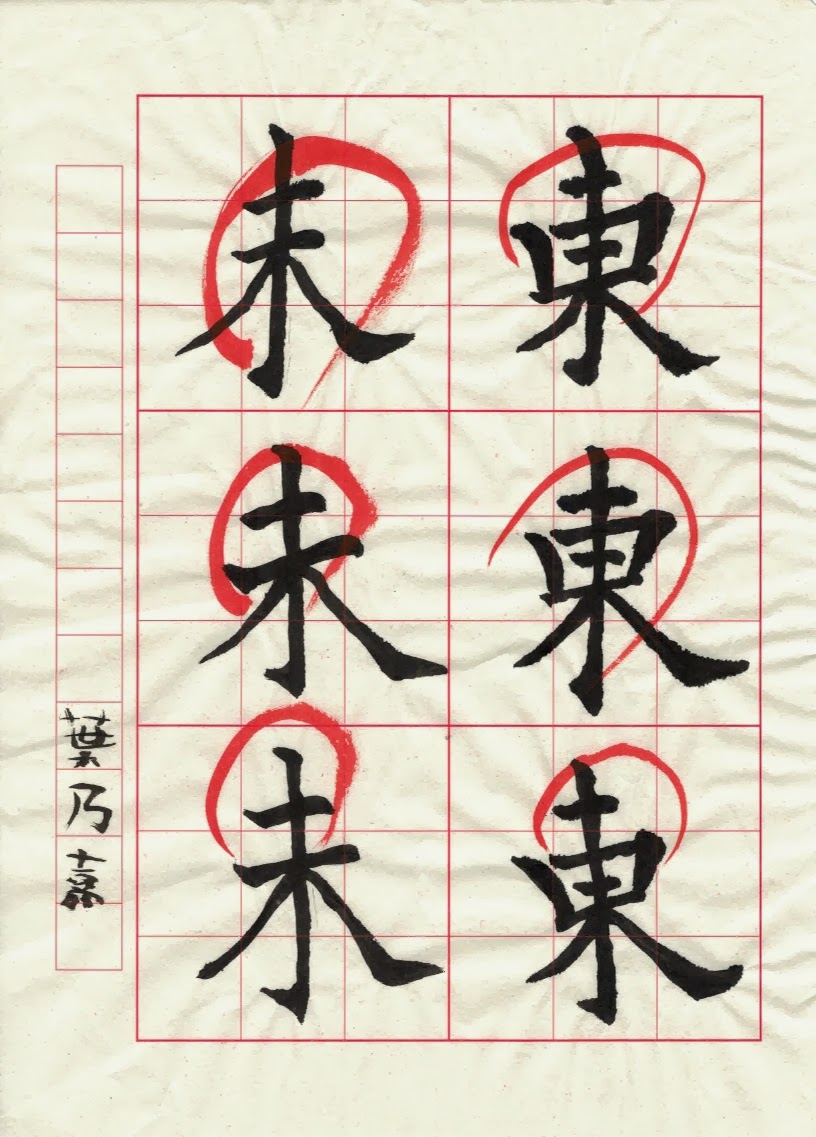 東東東
未未未
葉乃嘉